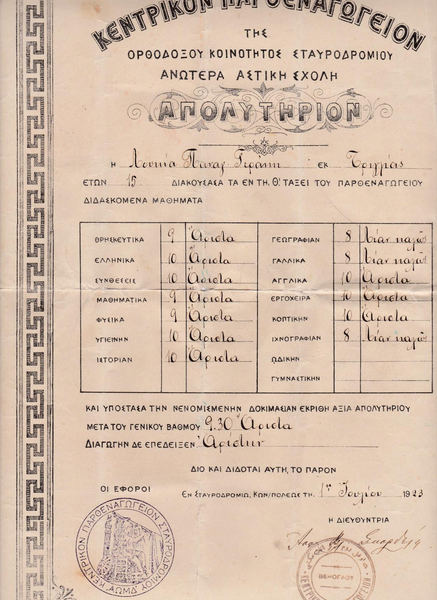 ΚΕΝΤΡΙΚΟΝ ΠΑΡΘΕΝΑΓΩΓΕΙΟΝ
ΤΗΣ
ΟΡΘΟΔΟΞΟΥ ΚΟΙΝΟΤΗΤΟΣ ΣΤΑΥΡΟΔΡΟΜΙΟΥ
ΑΝΩΤΕΡΑ ΑΣΤΙΚΗ ΣΧΟΛΗ
ΑΠΟΛΥΤΗΡΙΟΝ
Η Λουκία ΕΚ Τριγλίας
ΕΤΩΝ 15 ΔΙΑΚΟΥΣΑΣΑ ΤΑ ΕΝ ΤΗ Θ' ΤΑΞΕΙ ΤΟΥ ΠΑΡΘΕΝΑΓΩΓΕΙΟΥ
ΔΙΔΑΣΚΟΜΕΝΑ ΜΑΘΗΜΑΤΑ
ΘΡΗΣΚΕΥΤΙΚΑ 9 Άριστα ΓΕΩΓΡΑΦΙΑΝ 8 Λίαν καλῶς
ΕΛΛΗΝΙΚΑ 10 Άριστα ΓΑΛΛΙΚΑ 8 Λίαν καλῶς
ΣΥΝΘΕΣΕΙΣ 10 Άριστα ΑΓΓΛΙΚΑ 10 Άριστα
ΜΑΘΗΜΑΤΙΚΑ 9 Άριστα ΕΡΓΟΧΕΙΡΑ 10 Άριστα
ΦΥΣΙΚΑ 9 Άριστα ΚΟΠΤΙΚΗΝ 10 Άριστα
ΥΓΙΕΙΝΗΝ 10 Άριστα ΙΧΝΟΓΡΑΦΙΑΝ 8 Λίαν καλῶς
ΙΣΤΟΡΙΑΝ 10 Άριστα ΩΔΙΚΗΝ
ΓΥΜΝΑΣΤΙΚΗΝ
ΚΑΙ ΥΠΟΣΤΑΣΑ ΤΗΝ ΝΕΝΟΜΙΣΜΕΝΗΝ ΔΟΚΙΜΑΣΙΑΝ ΕΚΡΙΘΗ ΑΞΙΑ ΑΠΟΛΥΤΗΡΙΟΥ
ΜΕΤΑ ΤΟΥ ΓΕΝΙΚΟΥ ΒΑΘΜΟΥ 9,30 Άριστα
ΔΙΑΓΩΓΗΝ ΔΕ ΕΠΕΔΕΙΞΕΝ Ἀρίστην
ΔΙΟ ΚΑΙ ΔΙΔΟΤΑΙ ΑΥΤΗ, ΤΟ ΠΑΡΟΝ
ΟΙ ΕΦΟΡΟΙ
ΕΝ ΣΤΑΥΡΟΔΡΟΜΙΩ, ΚΩΝ/ΠΟΛΕΩΣ ΤΗ, 1ῃ Ἰουλίου 1923
Η ΔΙΕΥΘΥΝΤΡΙΑ
ΚΕΝΤΡΙΚΟΝ ΠΑΡΘΕΝΑΓΩΓΕΙΟΝ ΣΤΑΥΡΟΔΡΟΜΙΟΥ